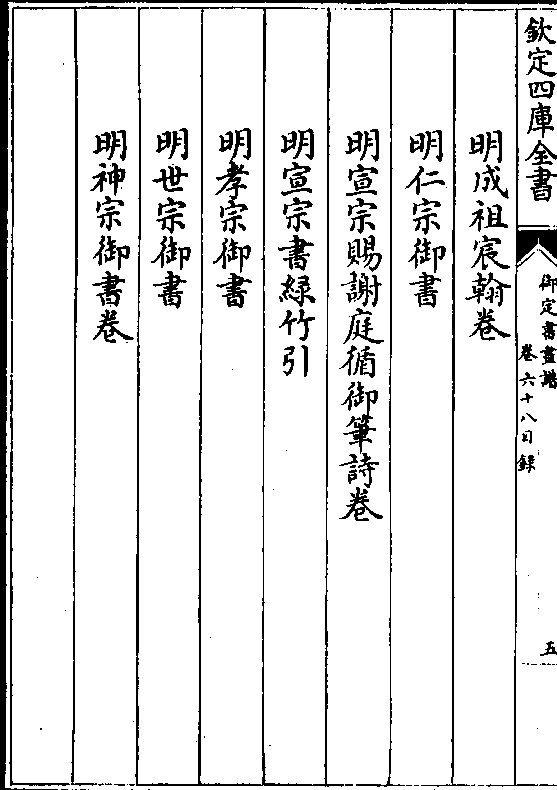 欽定四庫全書
御定書畫譜
卷六十八目錄
五
明成祖宸翰卷
明仁宗御書
明宣宗賜謝庭循御筆詩卷
明宣宗書緑竹引
明孝宗御書
明世宗御書
明神宗御書卷